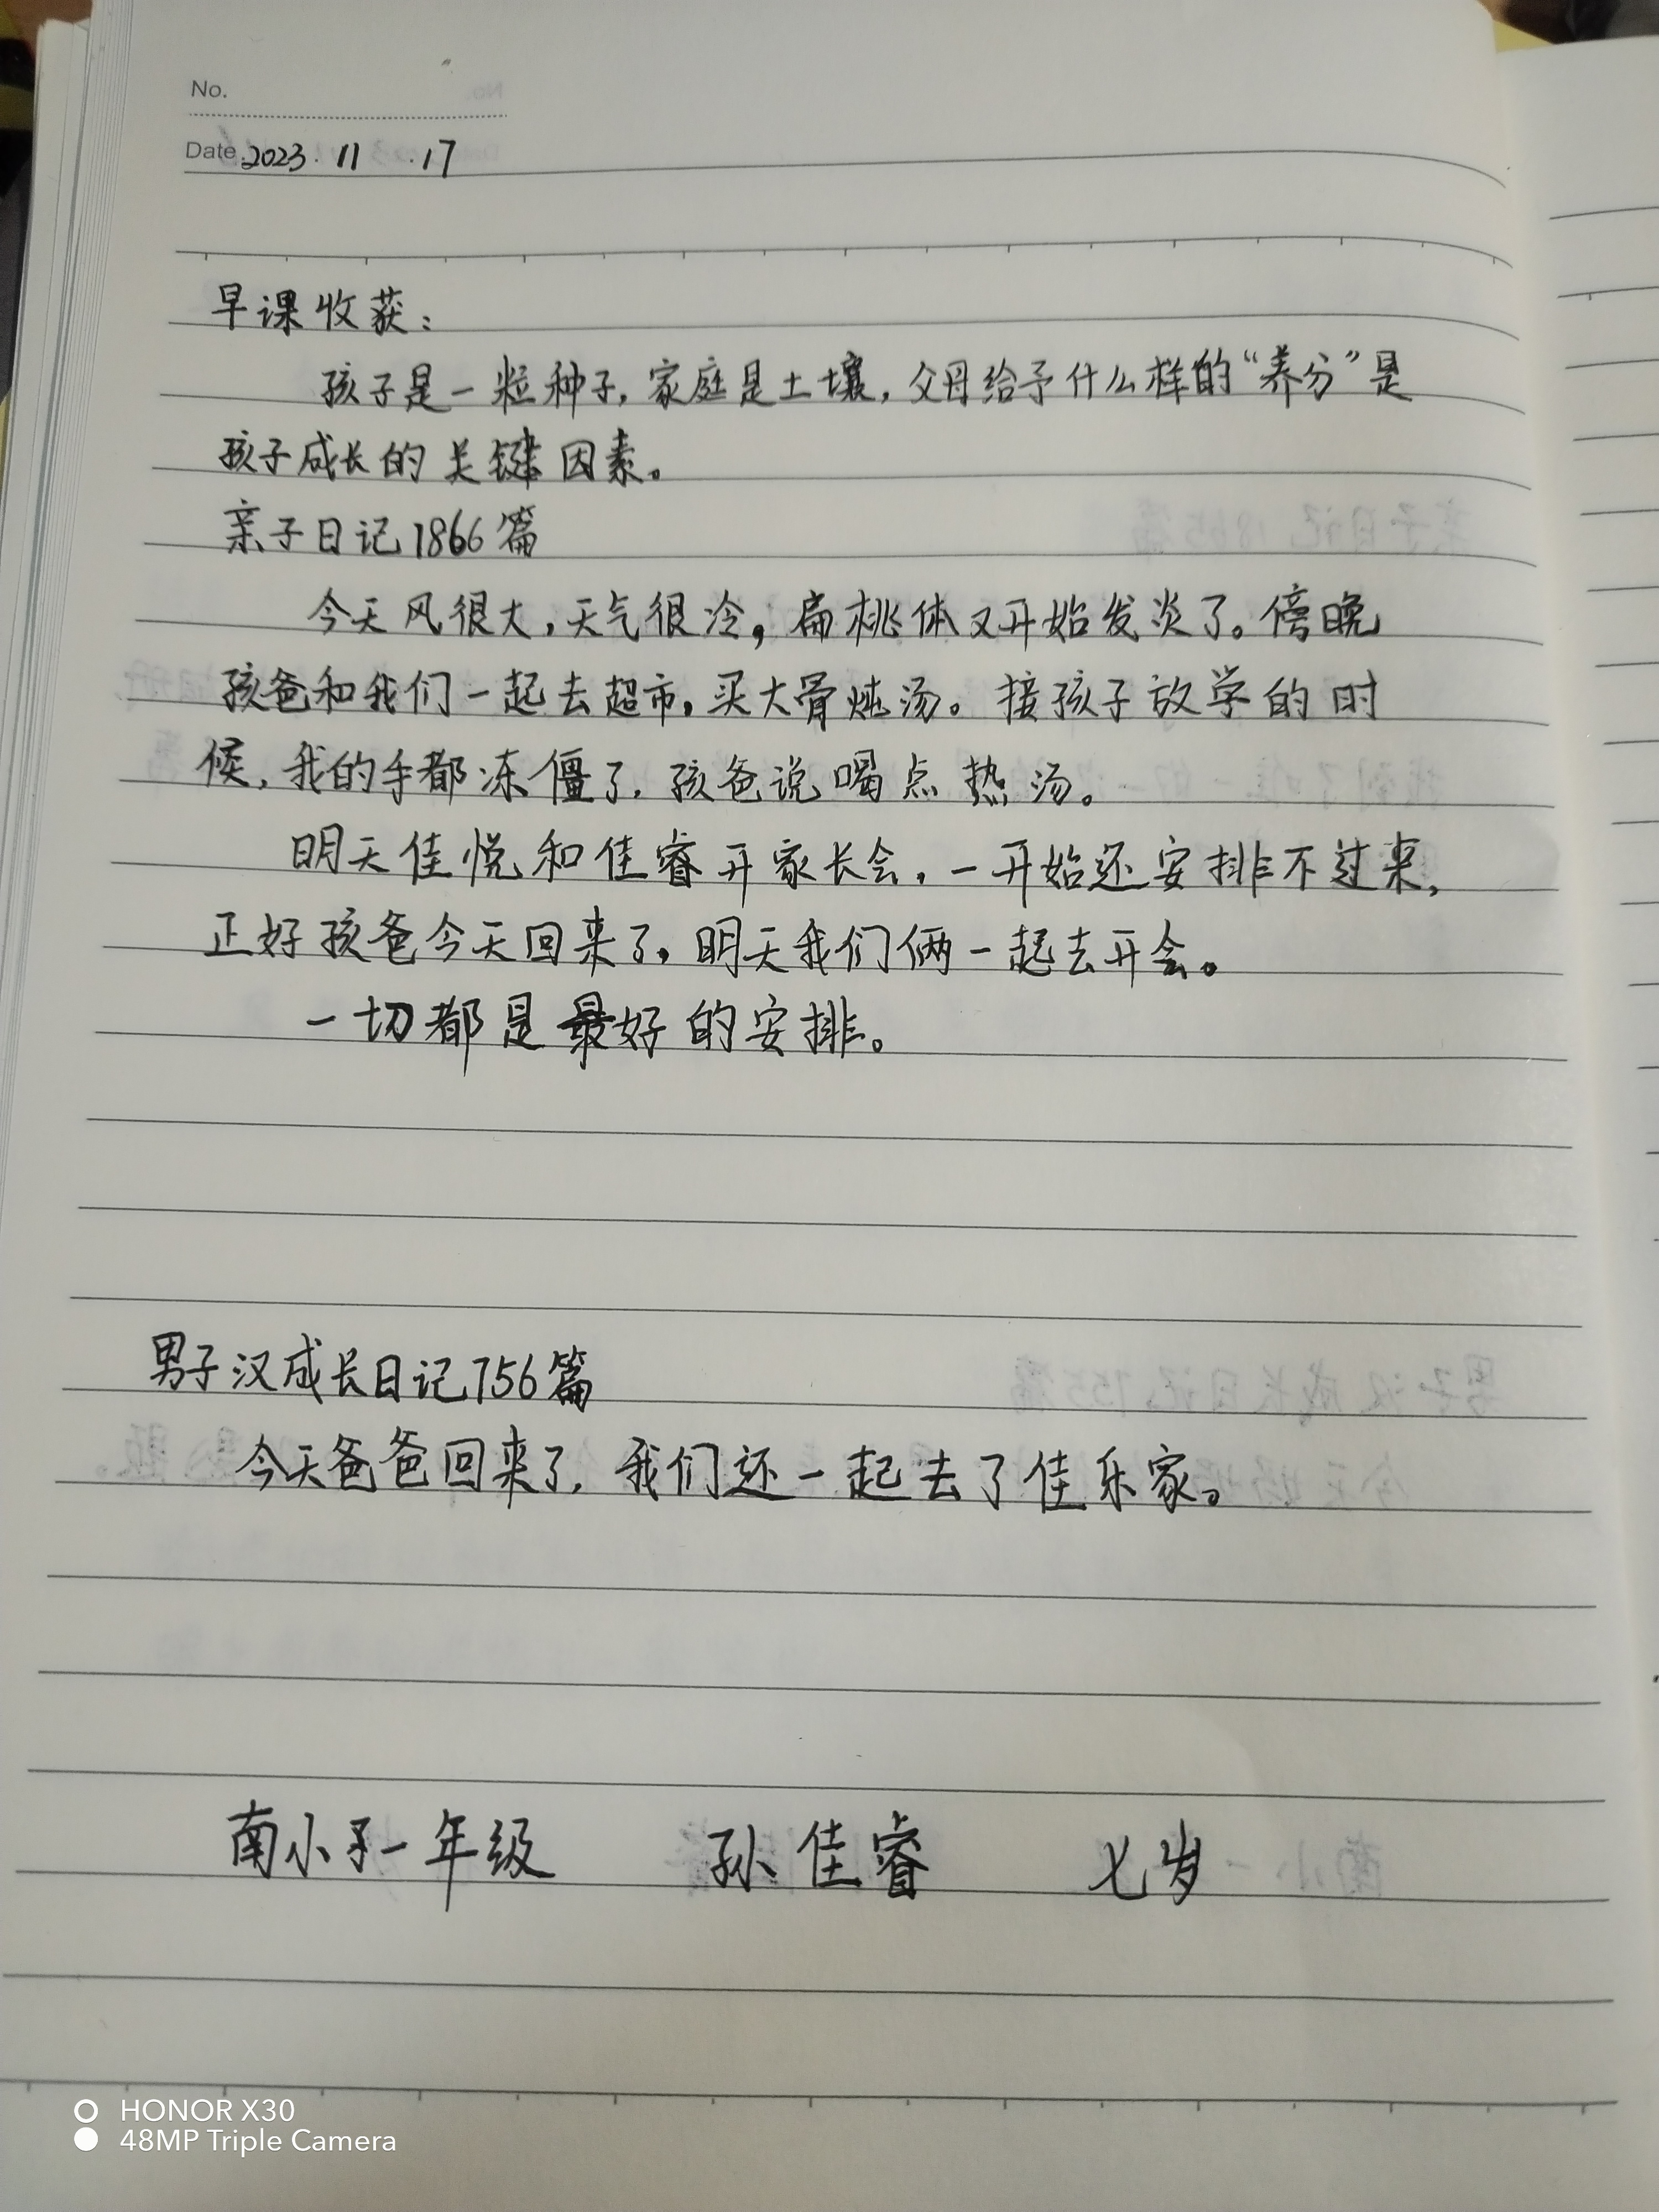 No.
Date 2023.11.17
早课收获：
孩子是一粒种子，家庭是土壤，父母给予什么样的“养分”是
孩子成长的关键因素。
亲子日记1866篇
今天风很大，天气很冷，扁桃体又开始发炎了。傍晚
孩爸和我们一起去超市，买大骨炖汤。接孩子放学的时
候，我的手都冻僵了，孩爸说喝点热汤。
明天佳悦和佳睿开家长会，一开始还安排不过来，
正好孩爸今天回来了，明天我们俩一起去开会。
一切都是最好的安排。
男子汉成长日记756篇
今天爸爸回来了，我们还一起去了佳乐家。
南小 一年级 孙佳睿 七岁
HONOR X30
48MP Triple Camera